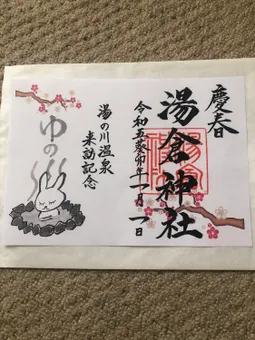 慶春
湯倉神社
令和五癸卯年一月一日
湯の川温泉
来訪記念
ゆの川